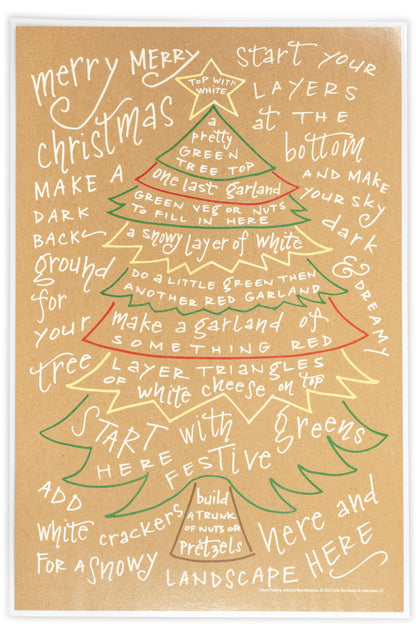 merry MERRY
christmas
START YOUR
LAYERS
at THE
bottom
AND MAKE
YOUR SKY
dark
& DREAMY
MAKE A
DARK
BACK
ground
for
your
tree
TOP WITH
WHITE
a
pretty
GREEN
TREE TOP
one last garland
GREEN VEG OR NUTS
TO FILL IN HERE
a snowy layer of white
DO A LITTLE GREEN THEN
ANOTHER RED GARLAND
make a garland of
SOMETHING RED
LAYER TRIANGLES
OF white cheese on top
START with greens
HERE FESTIVE
build
A TRUNK
OF NUTS OR
PRETZELS
ADD
white crackers
FOR A SNOWY
LANDSCAPE HERE
here and